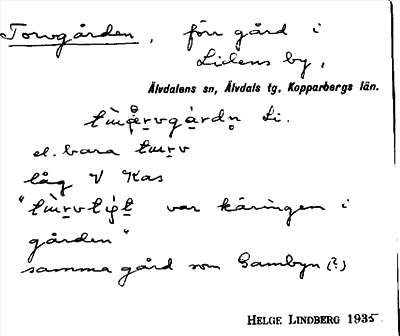 Torvgården, förr gård i
Lidens by,
Älvdalens sn, Älvdals tg, Kopparbergs län.
Li.
el. bara
låg V Kas
var käringen i
gården"
samma gård som Gambyn (?)
HELGE LINDBERG 1935.